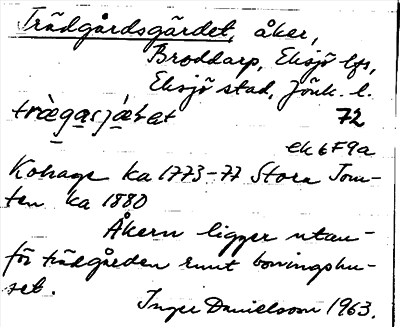 Trädgårdsgärdet, åker,
Broddarp, Eksjö lfs,
Eksjö stad, Jönk. l.
72
ek 6F9a
Kohage ka 1773-77 Stora Tom-
ten ka 1880
Åkern ligger utan-
för trädgården runt boningshu-
set.
Inger Danielsson 1963.